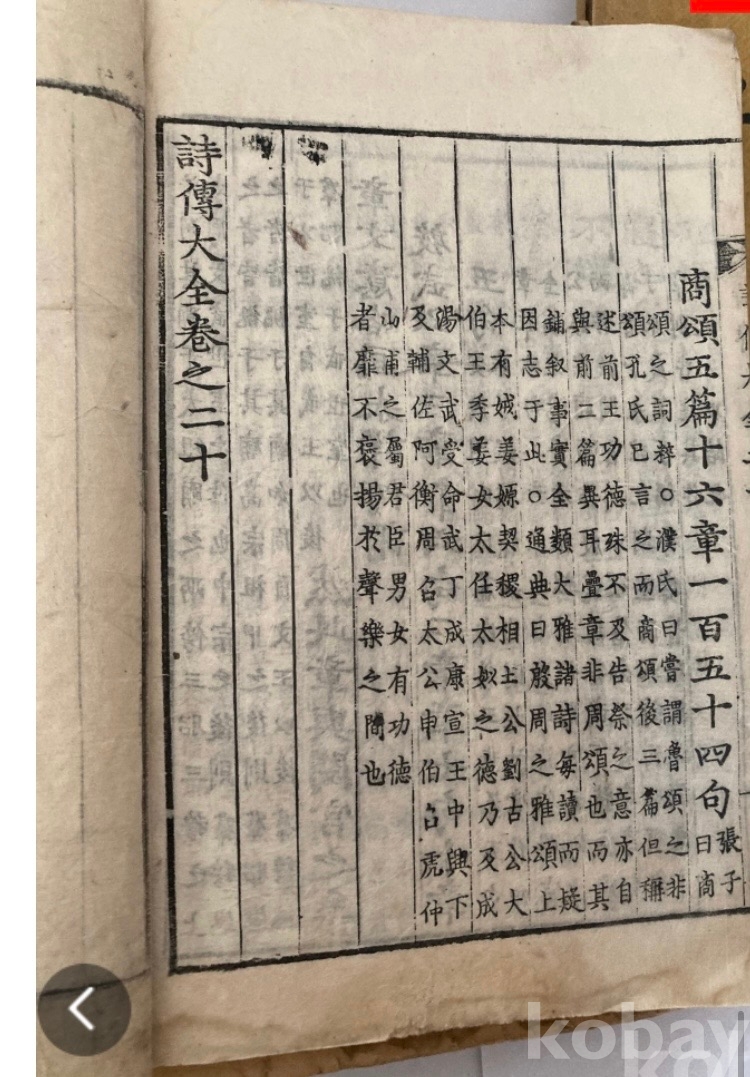 商頌五篇十六章一百五十四句
張子
曰商
頌之詞粹○濮氏曰嘗謂魯頌之非
頌孔氏已言之而商頌後三篇但稱
述前王功德殊不及告祭之意亦自
與前二篇異耳疊章非周頌也而其
鋪叙事實全類大雅諸詩每讀而疑
因志于此○通典曰殷周之雅頌上
本有娀姜嫄契稷相土公劉古公大
伯王季姜女太任太姒之德乃及成
湯文武受命武丁成康宣王中興下
及輔佐阿衡周召太公申伯召虎仲
山甫之屬君臣男女有功德
者靡不褒揚於聲樂之間也
詩傳大全卷之二十
kobay